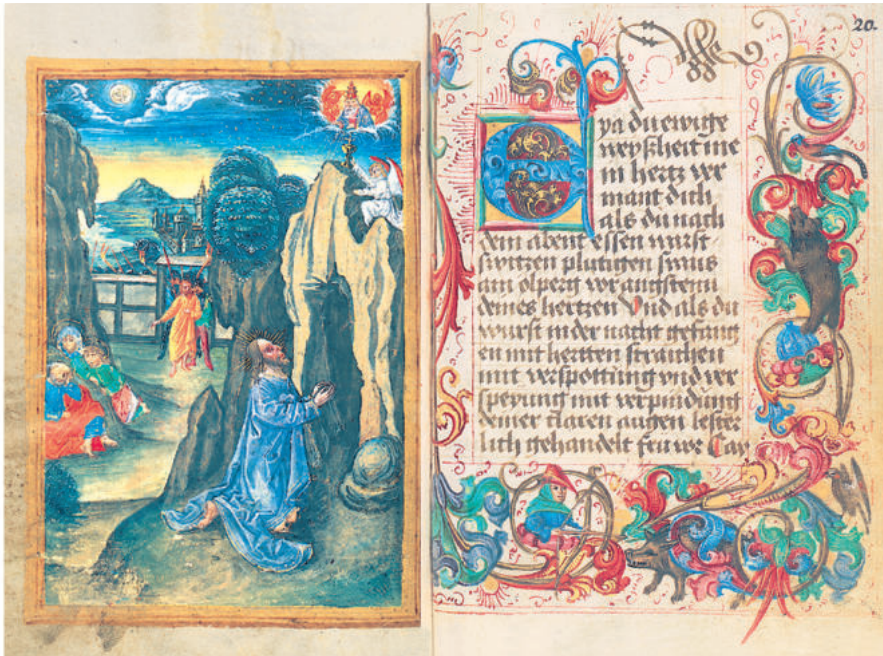 20.
Eya du ewige
weyßheit me
in hertz ver
mant dich
als du nach
dem abent essen wurst
switzen plutigen swais
am ölperg vor angsten
deines hertzen Vnd als du
wurst in der nacht gefang
en mit hertten straichen
mit verspottung vnd ver
speyung mit verpindung
deiner claren augen lester
lich gehandelt fru vor Cay